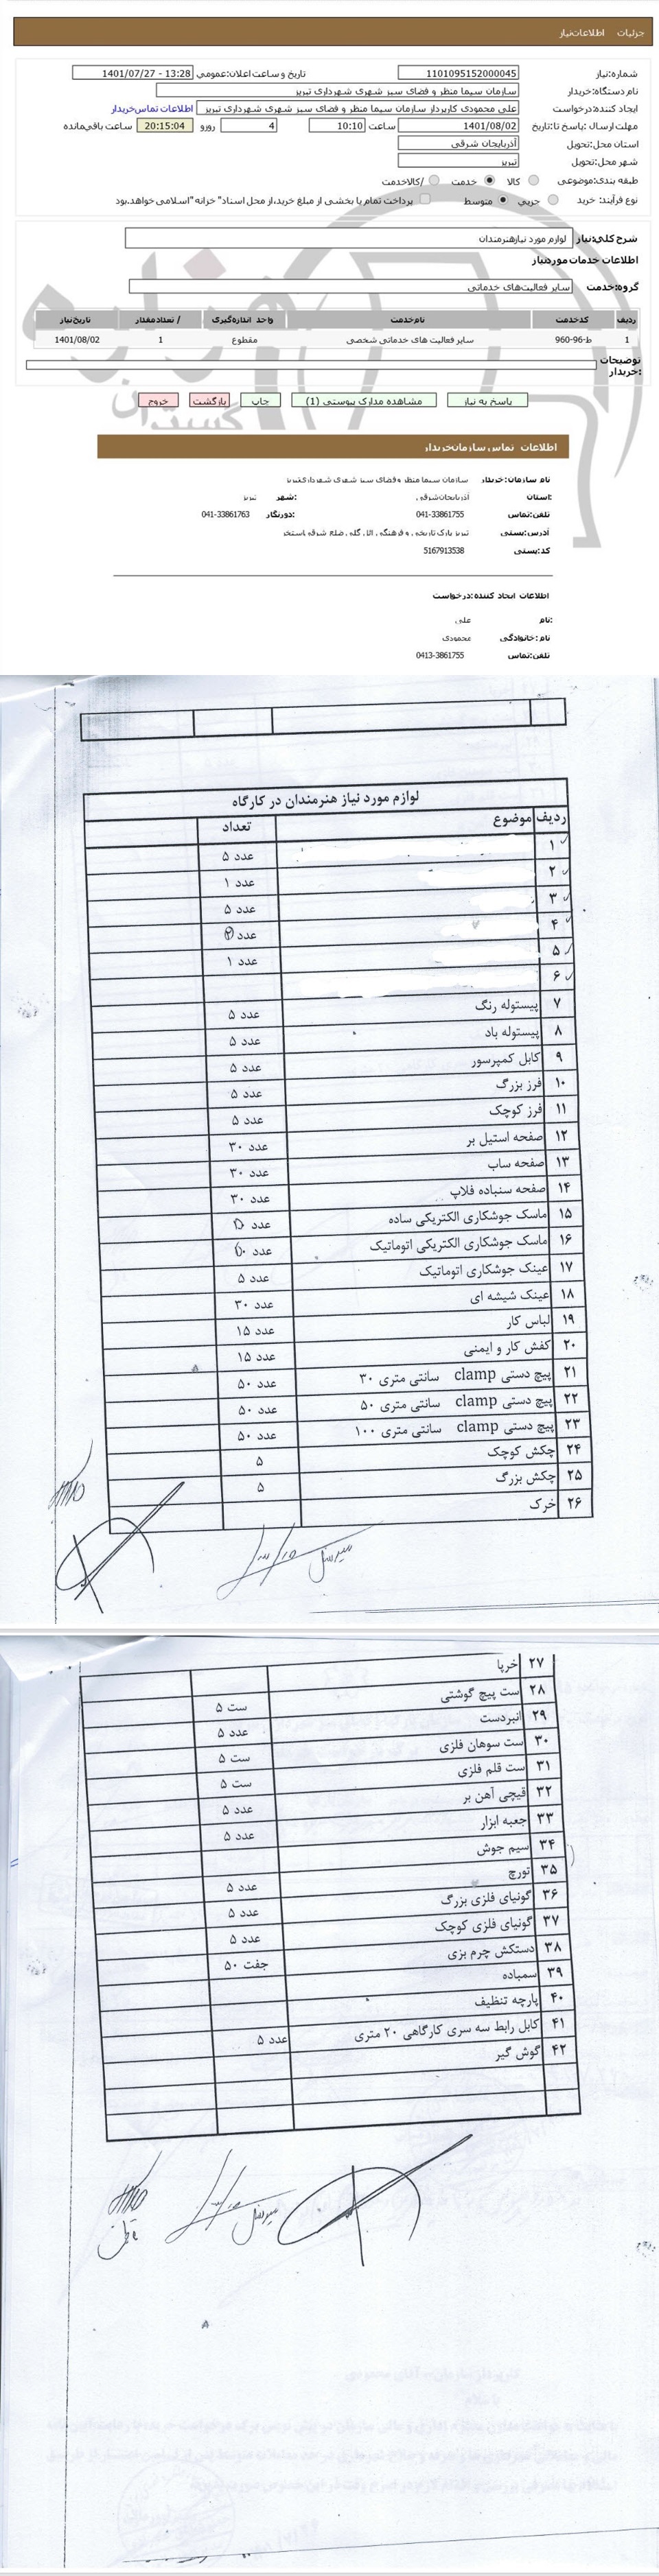 جزئیات اطلاعات نیاز
شماره نیاز: 1101095152000045 تاریخ و ساعت اعلان عمومی: 1401/07/27 - 13:28
نام دستگاه خریدار: سازمان سیما منظر و فضای سبز شهری شهرداری تبریز
ایجاد کننده درخواست: علی محمودی کارپرداز سازمان سیما منظر و فضای سبز شهری شهرداری تبریز اطلاعات تماس خریدار
مهلت ارسال پاسخ: تا تاریخ: 1401/08/02 ساعت 10:10 4 روز و 20:15:04 ساعت باقی مانده
استان محل تحویل: آذربایجان شرقی
شهر محل تحویل: تبریز
طبقه بندی موضوعی: کالا خدمت کالا/خدمت
نوع فرآیند خرید: جزیی متوسط پرداخت تمام یا بخشی از مبلغ خرید،از محل "اسناد خزانه اسلامی" خواهد بود.
شرح کلی نیاز: لوازم مورد نیاز هنرمندان
اطلاعات خدمات مورد نیاز
گروه خدمت: سایر فعالیت‌های خدماتی
ردیف کد خدمت نام خدمت واحد اندازه گیری تعداد / مقدار تاریخ نیاز
1 ط-96-960 سایر فعالیت های خدماتی شخصی مقطوع 1 1401/08/02
توضیحات خریدار:
پاسخ به نیاز مشاهده مدارک پیوستی (1) چاپ بازگشت خروج
اطلاعات تماس سازمان خریدار
نام سازمان خریدار: سازمان سیما منظر و فضای سبز شهری شهرداری تبریز
استان: آذربایجان شرقی شهر: تبریز
تلفن تماس: 041-33861755 دورنگار: 041-33861763
آدرس پستی: تبریز پارک تاریخی و فرهنگی ائل گلی ضلع شرقی استخر
کد پستی: 5167913538
اطلاعات ایجاد کننده درخواست:
نام: علی
نام خانوادگی: محمودی
تلفن تماس: 0413-3861755
لوازم مورد نیاز هنرمندان در کارگاه
ردیف موضوع تعداد
۱ ۵ عدد
۲ ۱ عدد
۳ ۵ عدد
۴ عدد
۵ ۱ عدد
۶
۷ پیستوله رنگ ۵ عدد
۸ پیستوله باد ۵ عدد
۹ کابل کمپرسور ۵ عدد
۱۰ فرز بزرگ ۵ عدد
۱۱ فرز کوچک ۵ عدد
۱۲ صفحه استیل بر ۳۰ عدد
۱۳ صفحه ساب ۳۰ عدد
۱۴ صفحه سنباده فلاپ ۳۰ عدد
۱۵ ماسک جوشکاری الکتریکی ساده عدد
۱۶ ماسک جوشکاری الکتریکی اتوماتیک عدد
۱۷ عینک جوشکاری اتوماتیک ۵ عدد
۱۸ عینک شیشه ای ۳۰ عدد
۱۹ لباس کار ۱۵ عدد
۲۰ کفش کار و ایمنی ۱۵ عدد
۲۱ پیچ دستی clamp سانتی متری ۳۰ ۵۰ عدد
۲۲ پیچ دستی clamp سانتی متری ۵۰ ۵۰ عدد
۲۳ پیچ دستی clamp سانتی متری ۱۰۰ ۵۰ عدد
۲۴ چکش کوچک ۵
۲۵ چکش بزرگ ۵
۲۶ خرک
۲۷ خرپا
۲۸ ست پیچ گوشتی ۵ ست
۲۹ انبردست ۵ عدد
۳۰ ست سوهان فلزی ۵ ست
۳۱ ست قلم فلزی ۵ ست
۳۲ قیچی آهن بر ۵ عدد
۳۳ جعبه ابزار ۵ عدد
۳۴ سیم جوش
۳۵ تورچ ۵ عدد
۳۶ گونیای فلزی بزرگ ۵ عدد
۳۷ گونیای فلزی کوچک ۵ عدد
۳۸ دستکش چرم بزی ۵۰ جفت
۳۹ سمباده
۴۰ پارچه تنظیف
۴۱ کابل رابط سه سری کارگاهی ۲۰ متری ۵ عدد
۴۲ گوش گیر